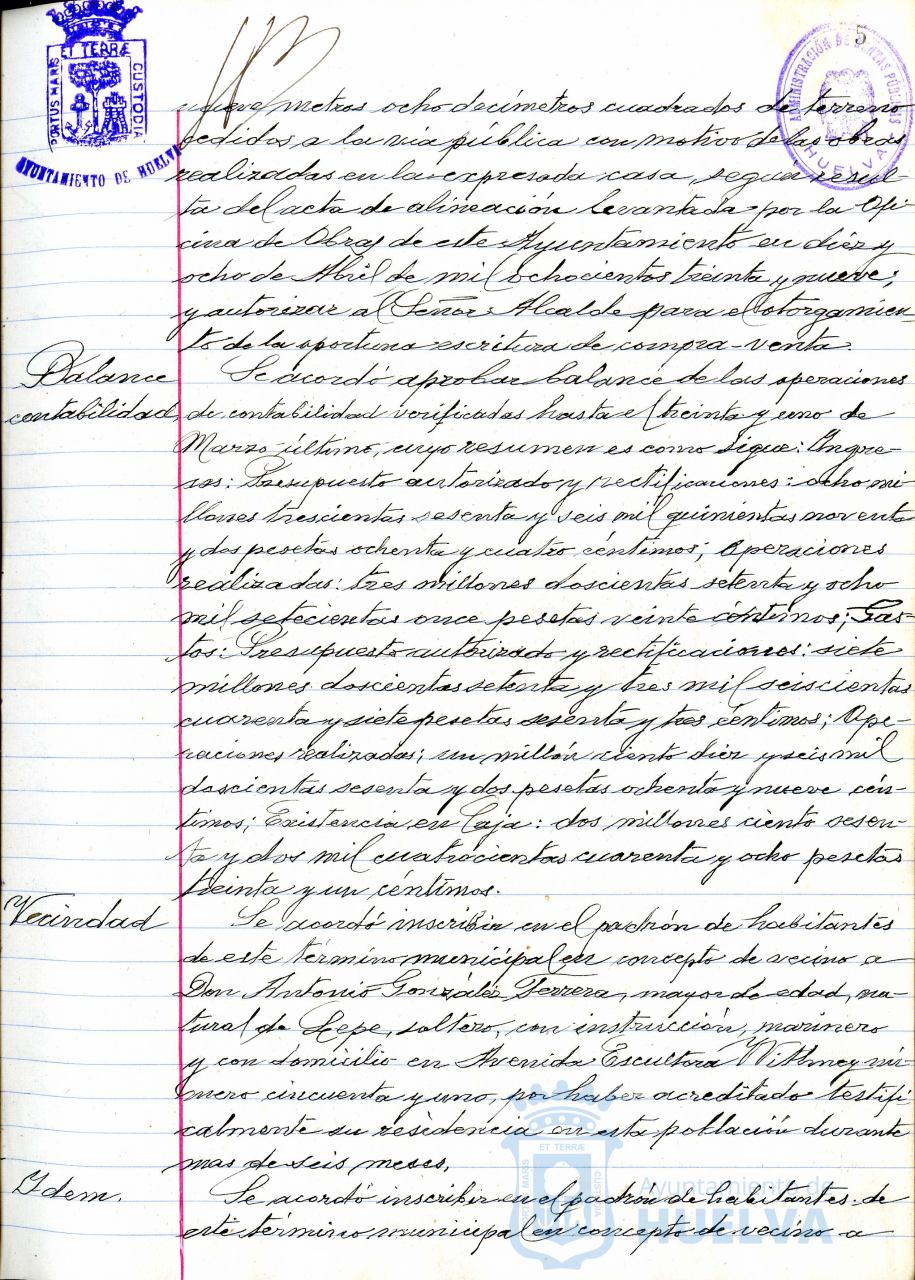 5
PORTUS MARIS ET TERRÆ CUSTODIA
AYUNTAMIENTO DE HUELVA
ADMINISTRACIÓN DE RENTAS PÚBLICAS
HUELVA
nueve metros ocho decímetros cuadrados de terreno
cedidos a la vía pública con motivo de las obras
realizadas en la expresada casa, según resul-
ta del acta de alineación levantada por la Ofi
cina de Obras de este Ayuntamiento en diez y
ocho de Abril de mil ochocientos treinta y nueve;
y autorizar al Señor Alcalde para el otorgamien-
to de la oportuna escritura de compra-venta.
Balance
contabilidad
Se acordó aprobar balance de las operaciones
de contabilidad verificadas hasta el treinta y uno de
Marzo último, cuyo resumen es como sigue: Ingre-
sos: Presupuesto autorizado y rectificaciones: ocho mi-
llones trescientas sesenta y seis mil quinientas noventa
y dos pesetas ochenta y cuatro céntimos; Operaciones
realizadas: tres millones doscientas setenta y ocho
mil setecientas once pesetas veinte céntimos; Gas-
tos: Presupuesto autorizado y rectificaciones: siete
millones doscientas setenta y tres mil seiscientas
cuarenta y siete pesetas sesenta y tres céntimos; Ope-
raciones realizadas; un millón ciento diez y seis mil
doscientas sesenta y dos pesetas ochenta y nueve cén-
timos; Existencia en Caja: dos millones ciento sesen-
ta y dos mil cuatrocientas cuarenta y ocho pesetas
treinta y un céntimos.
Vecindad
Se acordó inscribir en el padrón de habitantes
de este término municipal en concepto de vecino a
Don Antonio González Ferrera, mayor de edad, na-
tural de Lepe, soltero, con instrucción, marinero
y con domicilio en Avenida Escultora Withney nú-
mero cincuenta y uno, por haber acreditado testifi-
calmente su residencia en esta población durante
mas de seis meses.
Idem.
Se acordó inscribir en el padrón de habitantes de
este término municipal en concepto de vecino a
Ayuntamiento de
HUELVA